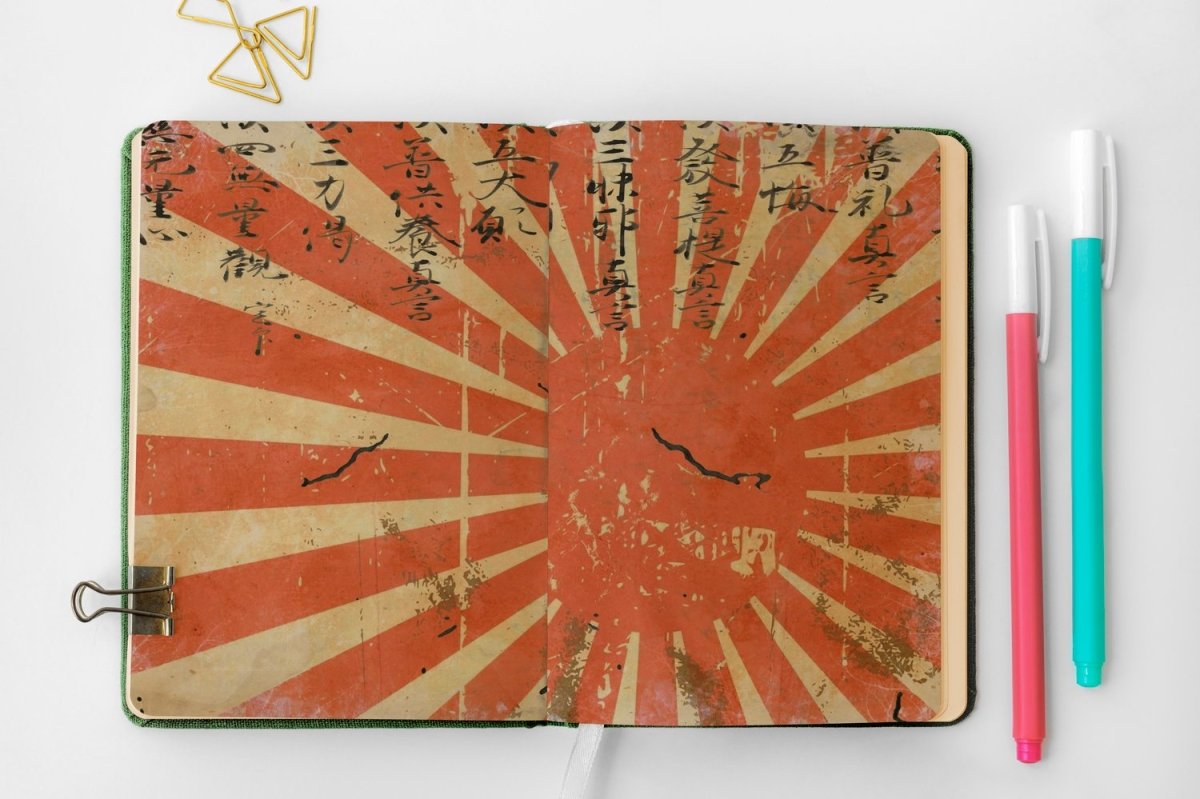 普礼真言
五悔
發菩提真言
三昧耶真言
五大願
普供養真言
三力偈
四無量觀
量心